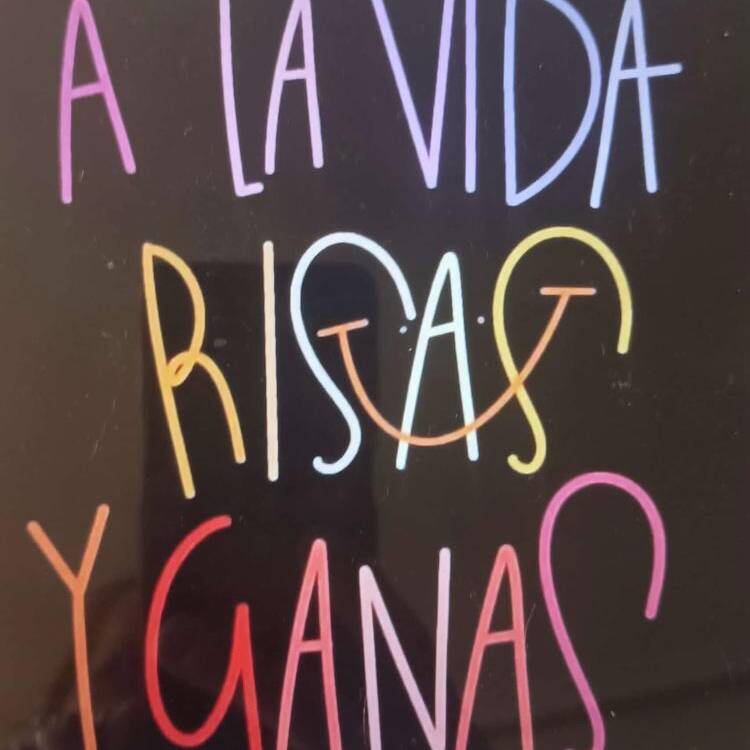 A LA VIDA
RISAS
Y GANAS